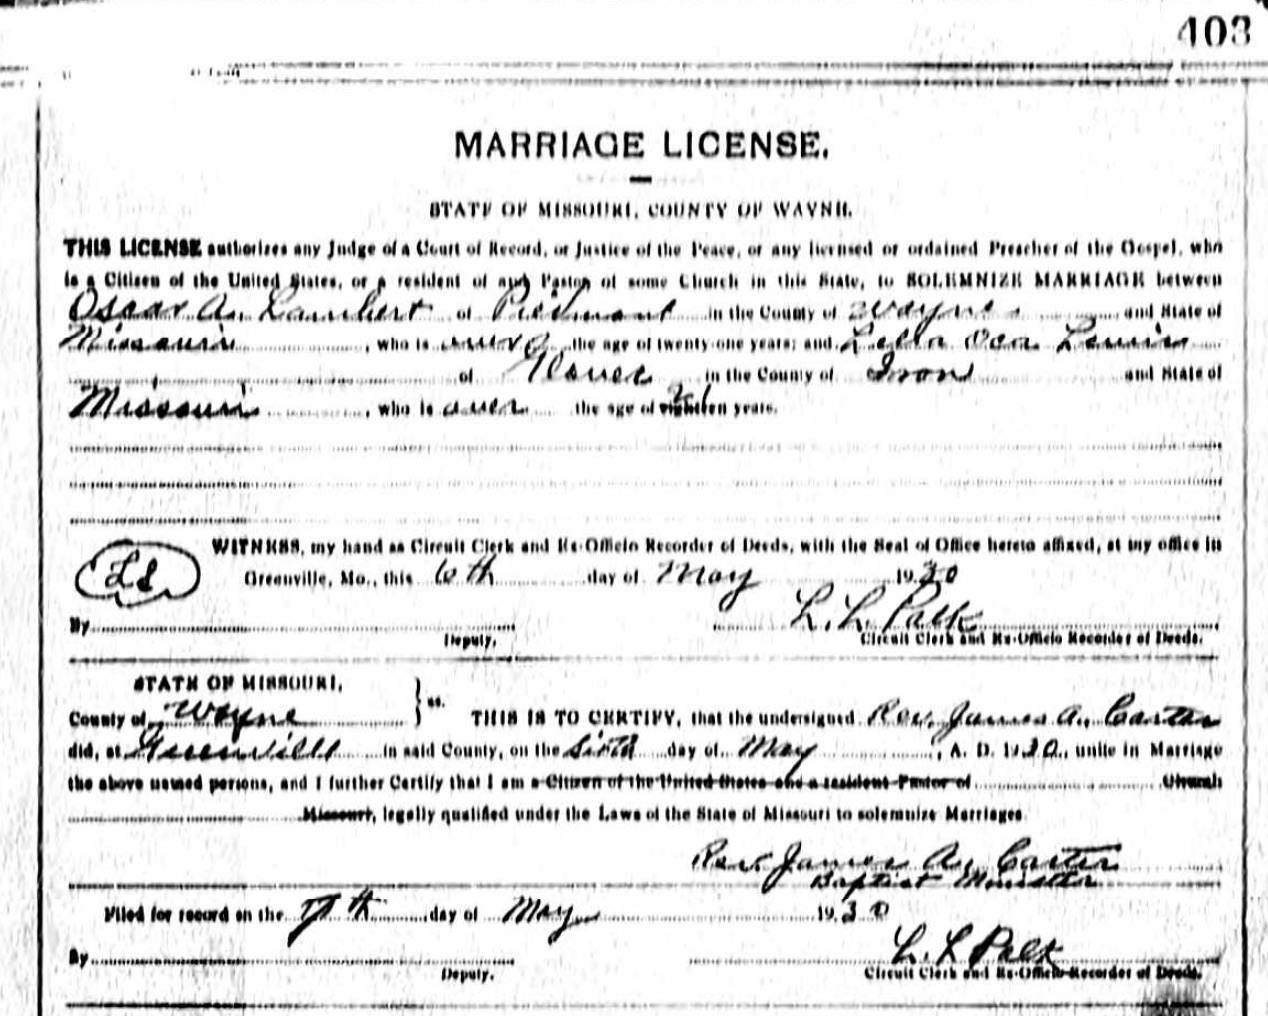 403
MARRIAGE LICENSE.
STATE OF MISSOURI, COUNTY OF WAYNE.
THIS LICENSE authorizes any Judge of a Court of Record, or Justice of the Peace, or any licensed or ordained Preacher of the Gospel, who
is a Citizen of the United States, or a resident of and Pastor of some Church in this State, to SOLEMNIZE MARRIAGE between
Oscar A. Lambert of Piedmont in the County of Wayne and State of
Missouri, who is over the age of twenty-one years; and Lella Lewis
of Glover in the County of Iron and State of
Missouri, who is over the age of eighteen 21 years.
WITNESS, my hand as Circuit Clerk and Ex-Officio Recorder of Deeds, with the Seal of Office hereto affixed, at my office in
LS Greenville, Mo., this 6th day of May 1930
By L. L. Palk
Deputy. Circuit Clerk and Ex-Officio Recorder of Deeds.
STATE OF MISSOURI,
County of Wayne } ss. THIS IS TO CERTIFY, that the undersigned Rev. James A. Carter
did, at Greenvill in said County, on the Sixth day of May, A. D. 1930, unite in Marriage
the above named persons, and I further Certify that I am a Citizen of the United States and a resident Pastor of Church
Missouri, legally qualified under the Laws of the State of Missouri to solemnize Marriages.
Rev. James A. Carter
Baptist Minister
Filed for record on the 7th day of May 1930
By L. L. Palk
Deputy. Circuit Clerk and Ex-Officio Recorder of Deeds.